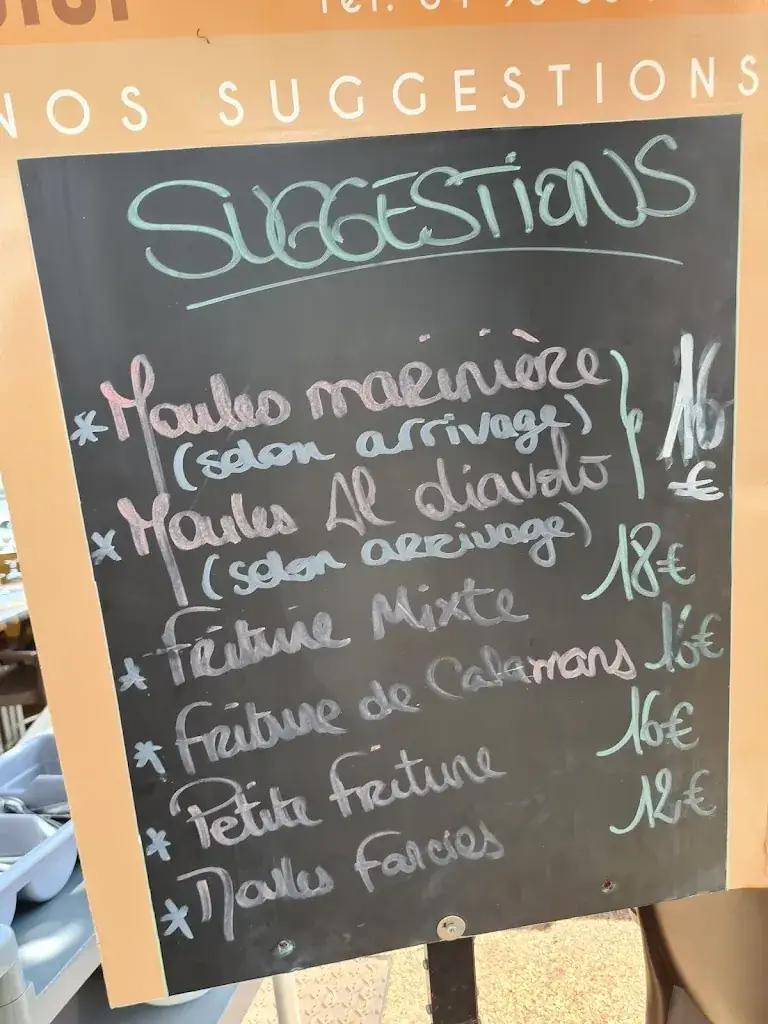 NOS SUGGESTIONS
SUGGESTIONS
* Moules marinière } 16 €
(selon arrivage)
* Moules Al diavolo
(selon arrivage)
* Friture Mixte 18€
* Friture de Calamars 16€
* Petite Friture 16€
* Moules Farcies 12€